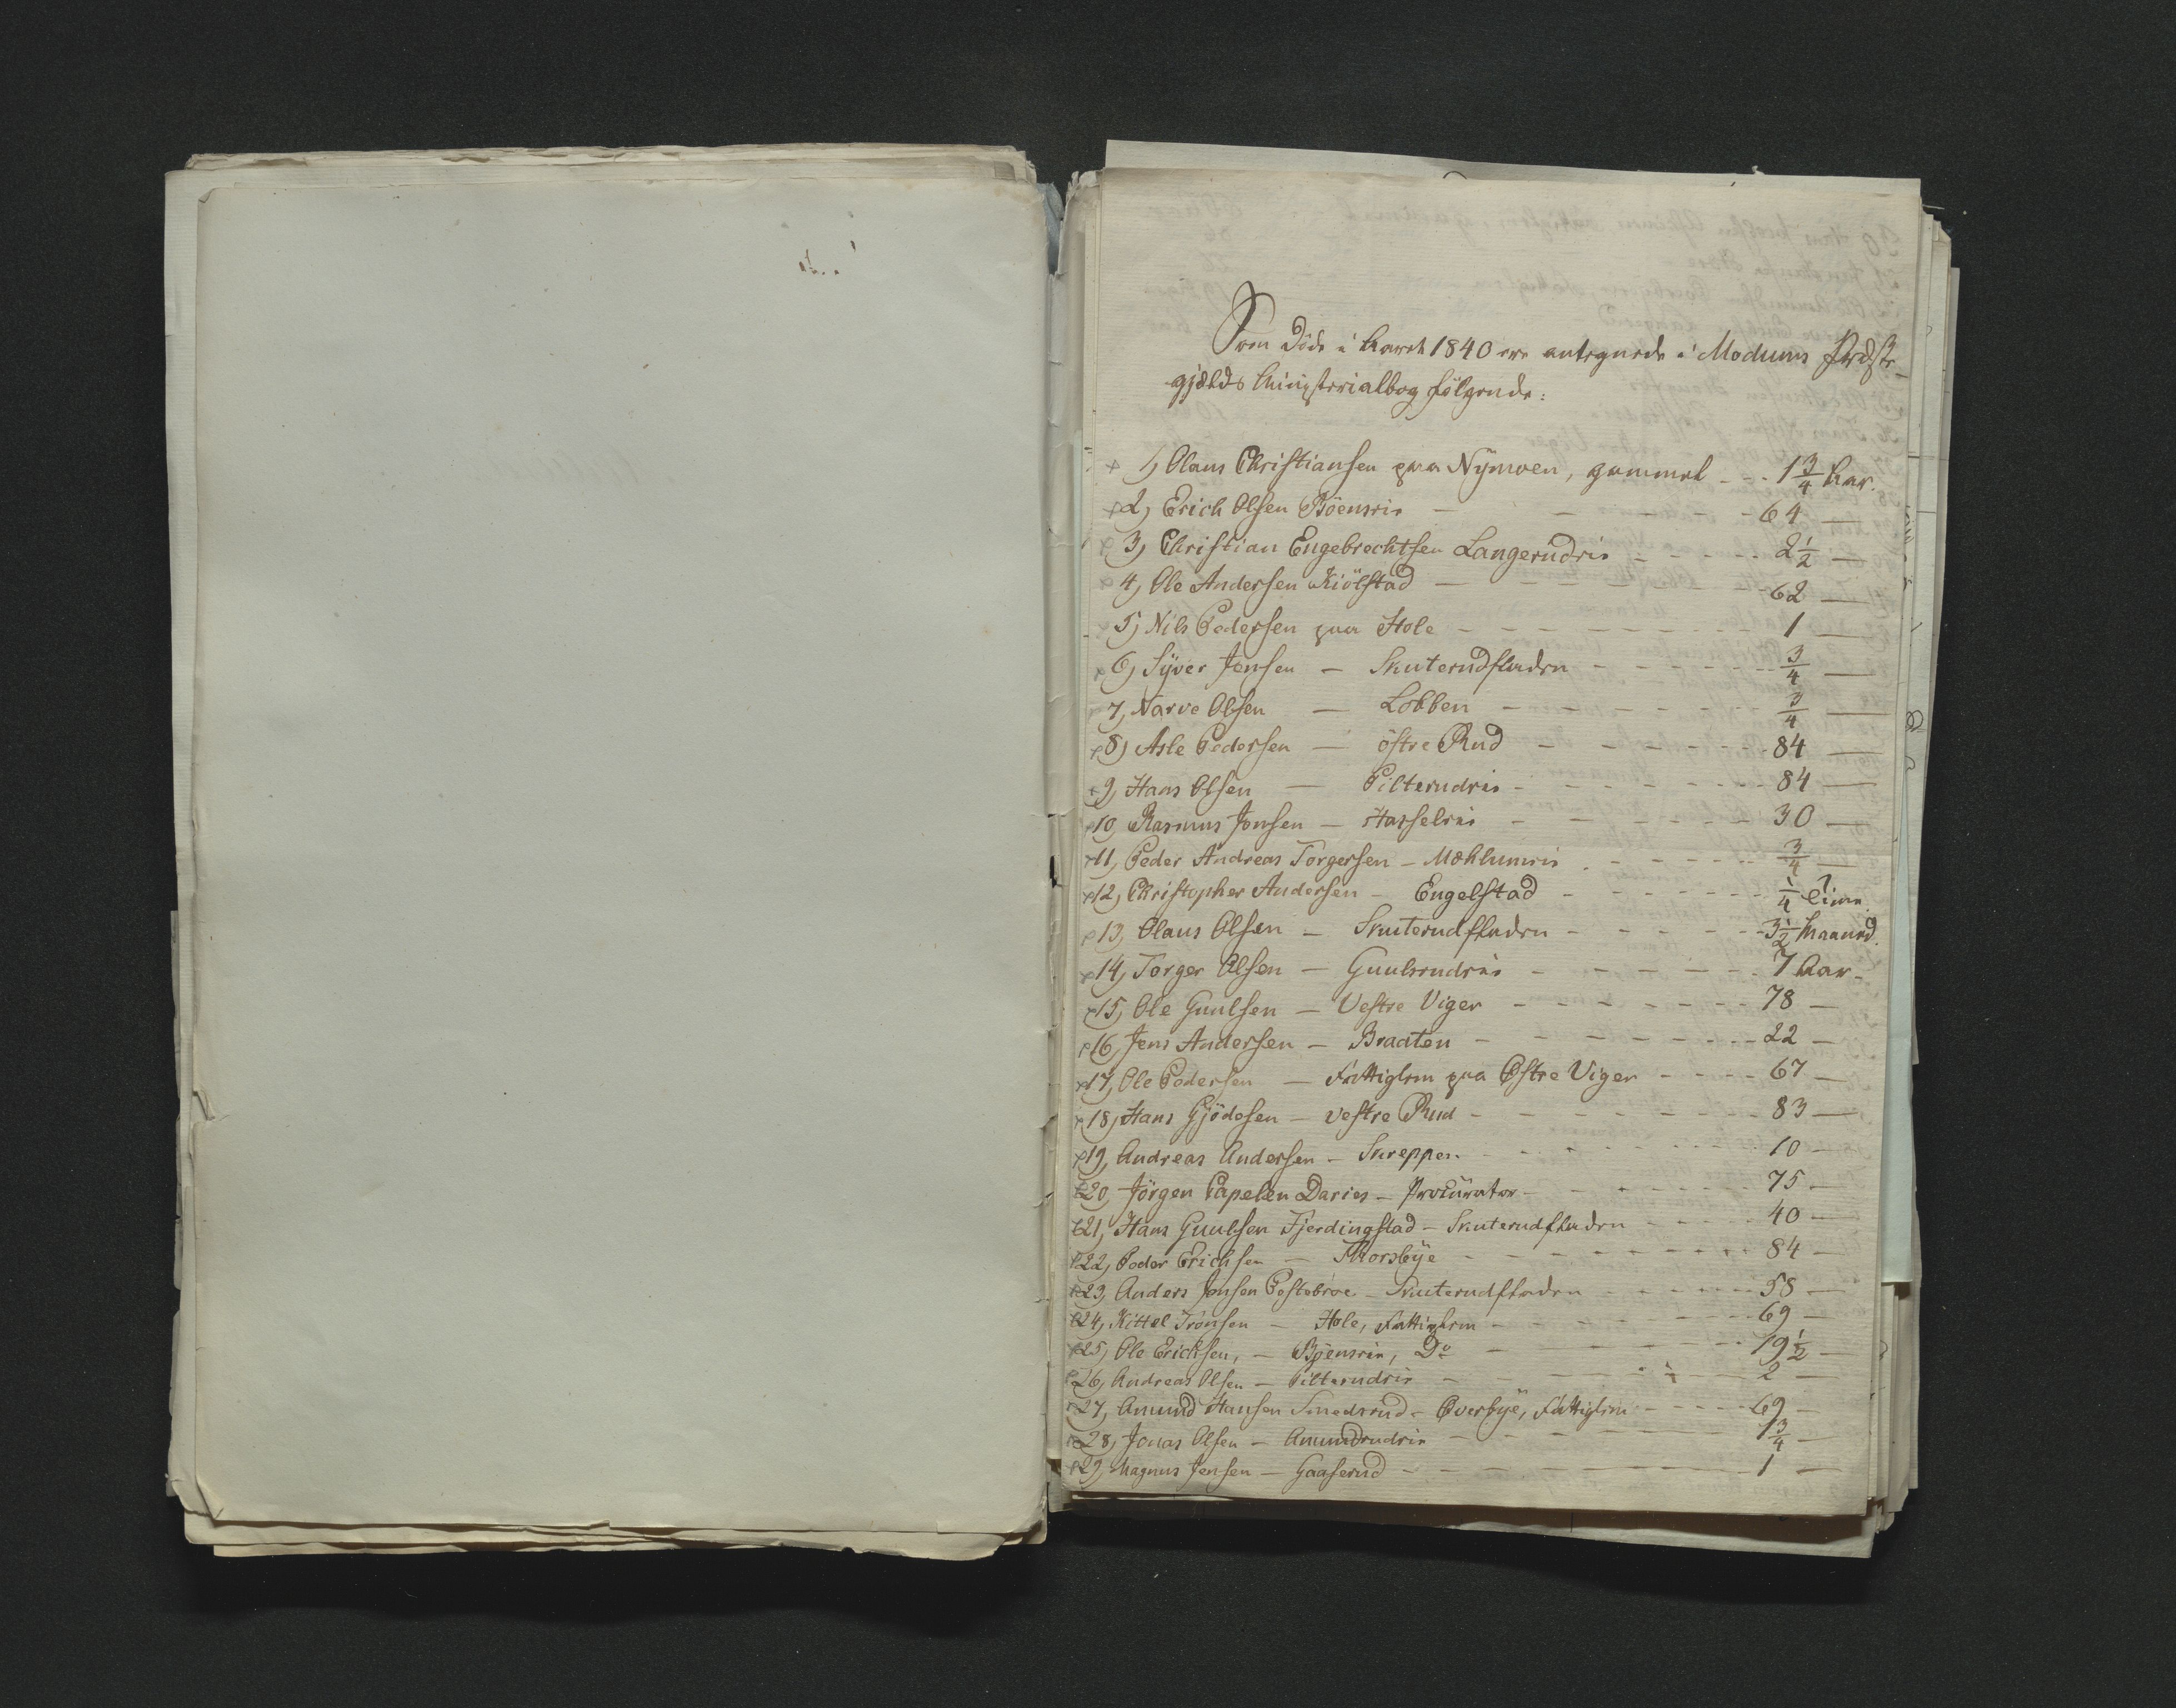 Som Døde i Aaret 1840 ere antegnede i Modums Præste-
gjælds Ministerialbog følgende:
1, Olaus Christiansen paa Nymoen, gammel - - - 1 3/4 Aar.
2, Erich Olsen Böenseie - - - - 64 —
3, Christian Engebrechtsen Langerudeie - - - - - 2 1/2 —
4, Ole Andersen Kiölstad - - - - - 62 —
5, Nils Pedersen paa Hole - - - - - - - 1 —
6, Syver Jensen — Skuterudfladen - - - - - - 3/4 —
7, Narve Olsen — Lobben - - - - - - - 3/4 —
8, Asle Pedersen — östre Rud - - - - - - 84 —
9, Hans Olsen — Pilterudeie - - - - - - - 84 —
10, Rasmus Jonsen — Hasseleie - - - - - - 30 —
11, Peder Andreas Torgersen — Mæhlumeie - - - - - - 3/4 —
12, Christopher Andersen — Engelstad - - - - - - 1/4 Time.
13, Olaus Olsen — Skuterudfladen - - - - - - 3 1/2 Maaned.
14, Torger Olsen — Guulsrudeie - - - - - - 7 Aar -
15, Ole Guulsen — Vestre Viger - - - - - - - 78 —
16, Jens Andersen — Braaten - - - - - - - - 22 —
17, Ole Pedersen — Fattiglem paa Østre Viger - - - - 67 —
18, Hans Gjödesen — vestre Rud - - - - - - - 83 —
19, Andreas Andersen — Skreppen - - - - - - - 10 —
20, Jörgen Capelen Daries — Procurator - - - - - - 75 —
21, Hans Guulsen Fjerdingstad — Skuterudfladen - - - - - 40 —
22, Peder Erichsen — Thorsbye - - - - - - - - 84 —
23, Anders Jensen — Skuterudfladen - - - - - - 58 —
24, Kittel Tronsen — Hole, Fattiglem - - - - - - - 69 —
25, Ole Erichsen, — Böenseie, Do - - - - - - 19 1/2 —
26, Andreas Olsen — Pilterudeie - - - - - - 2 —
27, Amund Hansen Smedsrud — Overbye, Fattiglem - - - - - 69 —
28, Jonas Olsen — Amundrudeie - - - - - - 1 3/4 —
29, Magnus Jensen — Gaaserud - - - - - - - 1 —